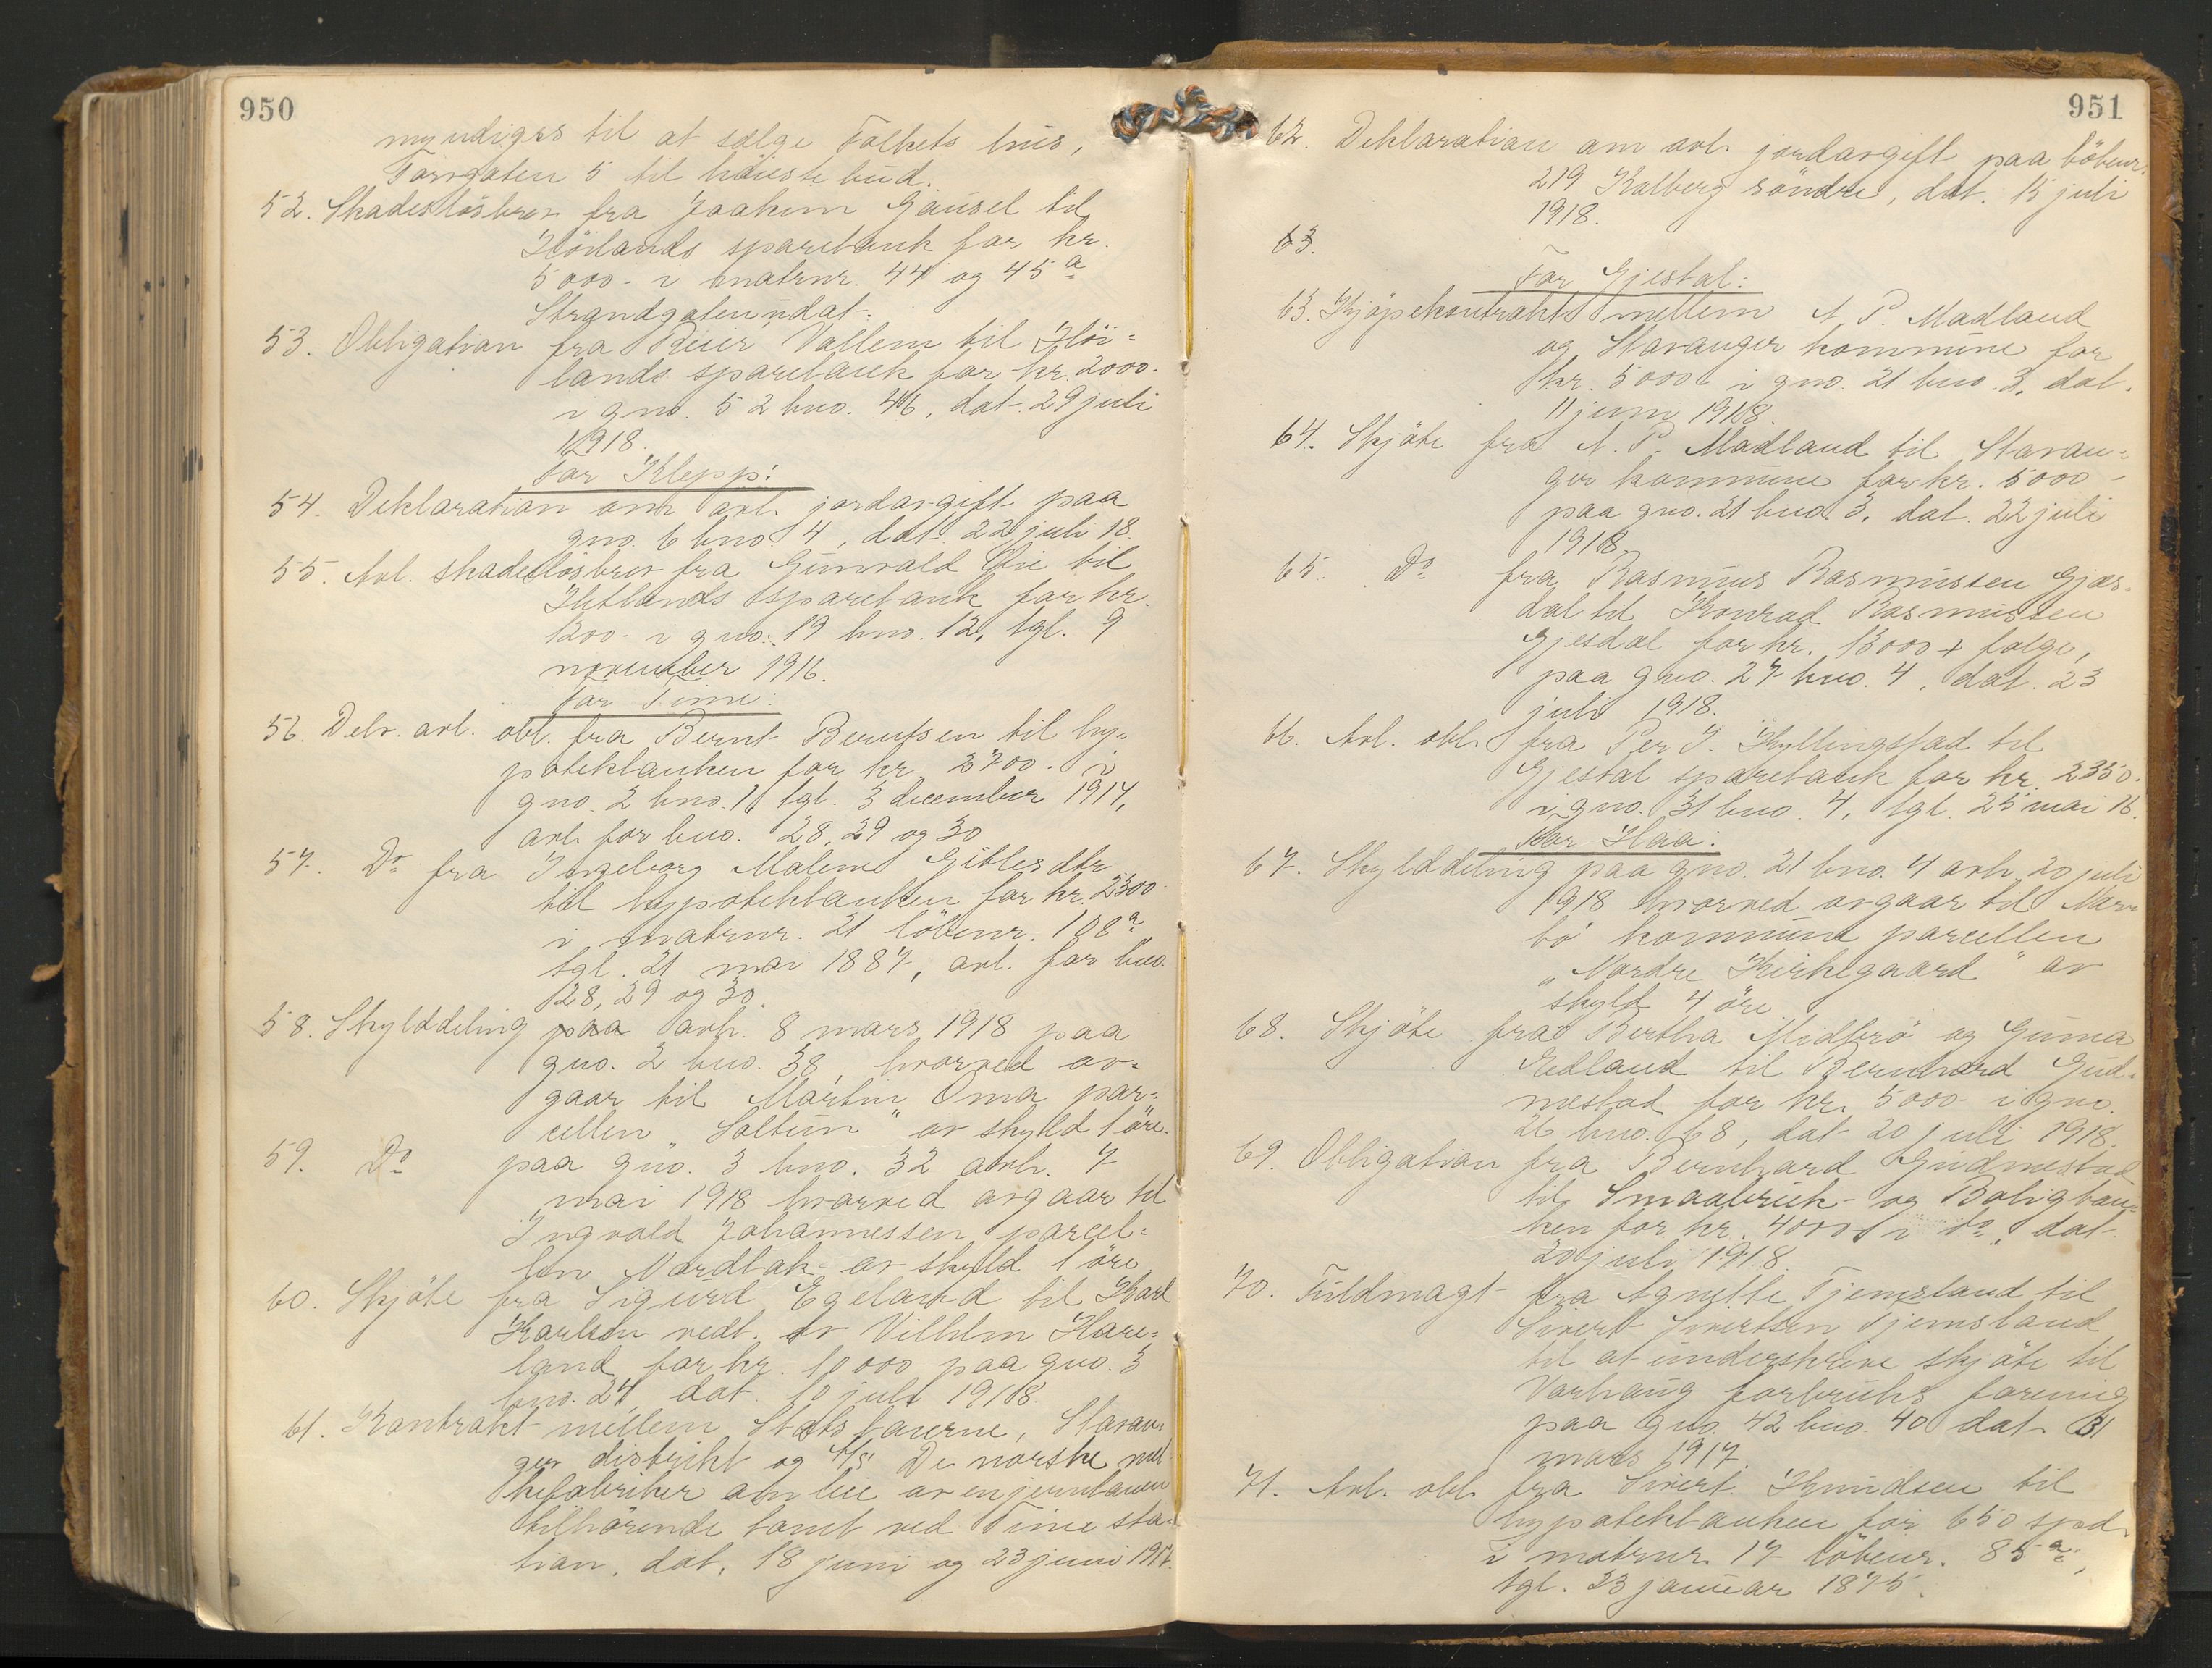 950
myndiges til at sælge Folkets hus,
Torvgaten 5 til höieste bud.
52. Skadeslösbrev fra Joakim Gausel til
Höilands sparebank for kr.
5000.- i matrnr. 44 og 45 a
Strandgaten udat.
53. Obligation fra Reier Vallem til Höi=
lands sparebank for kr. 2000.-
i gno. 52 bno. 46, dat. 29 juli
1918.
For Klepp:
54. Deklaration om avl. jordavgift paa
gno. 6 bno. 4, dat. 22 juli 18.
55. Avl. skadeslösbrev fra Gunvald Lie til
Hetlands sparebank for kr.
1200.- i gno. 19 bno. 12, tgl. 9
november 1916.
For Time:
56. Delv. avl. obl. fra Bernt Berntsen til hy=
potekbanken for kr. 3700.- i
gno. 2 bno. 1, tgl. 3 december 1914,
avl. for bno. 28, 29 og 30
57. Do fra Ingeborg Malene Gitlesdtr
til hypotekbanken for kr. 2300.-
i matrnr. 21 löbenr. 108 a,
tgl. 21 mai 1887, avl. for bno.
28, 29 og 30.
58. Skylddeling paa avh. 8 mars 1918 paa
gno. 2 bno. 38, hvorved av=
gaar til Martin Oma par=
cellen „Soltun" av skyld 1 öre.
59. Do paa gno. 3 bno. 32 avh. 7
mai 1918 hvorved avgaar til
Ingvald Johannessen parcel=
len Nordbak av skyld 1 öre
60. Skjöte fra Sigurd Egeland til Karl
Karlsen vedt. av Vilhelm Hare=
land for kr. 10000 paa gno. 3
bno. 24, dat. 10 juli 1918.
61. Kontrakt mellem Statsbanerne, Stavan=
ger distrikt og A/S De norske mel
kefabriker om leie av en jernbanen
tilhörende tomt ved Time sta=
tion, dat. 18 juni og 23 juni 1917.
951
62. Deklaration om avl. jordavgift paa löbenr.
219 Kalberg söndre, dat. 15 juli
1918.
63.
For Gjestal:
63. Kjöpekontrakt mellem N. P. Madland
og Stavanger kommune for
kr. 5000 i gno. 21 bno. 3, dat.
11 juni 1918.
64. Skjöte fra N. P. Madland til Stavan=
ger kommune for kr. 5000.-
paa gno. 21 bno. 3, dat. 22 juli
1918.
65. Do fra Rasmus Rasmussen Gjes=
dal til Konrad Rasmussen
Gjesdal for kr. 13000 + folge,
paa gno. 27 bno. 4, dat. 23
juli 1918.
66. Avl. obl. fra Per J. Kyllingstad til
Gjestal sparebank for kr. 2350.-
i gno. 31 bno. 4, tgl. 25 mai 16.
For Haa:
67. Skylddeling paa gno. 21 bno. 4 avh. 20 juli
1918 hvorved avgaar til Nær
bö kommune parcellen
„Nordre Kirkegaard" av
skyld 4 öre
68. Skjöte fra Bertha Midbrö og Gunna
Edland til Bernhard Gud=
mestad for kr. 5000.- i gno.
26 bno. 68, dat 20 juli 1918.
69. Obligation fra Bernhard Gudmestad
til Smaabruk- og Boligban=
ken for kr. 4000.- i do, dat
20 juli 1918.
70. Fuldmagt fra Agnethe Tjemsland til
Sivert Sivertsen Tjemsland
til at underskrive skjöte til
Varhaug forbruks forening
paa gno. 42 bno. 40 dat. 31
mars 1917.
71. Avl. obl. fra Sivert Knudsen til
hypotekbanken for 650 spd.
i matrnr. 17 löbenr. 85 a,
tgl. 23 januar 1875.